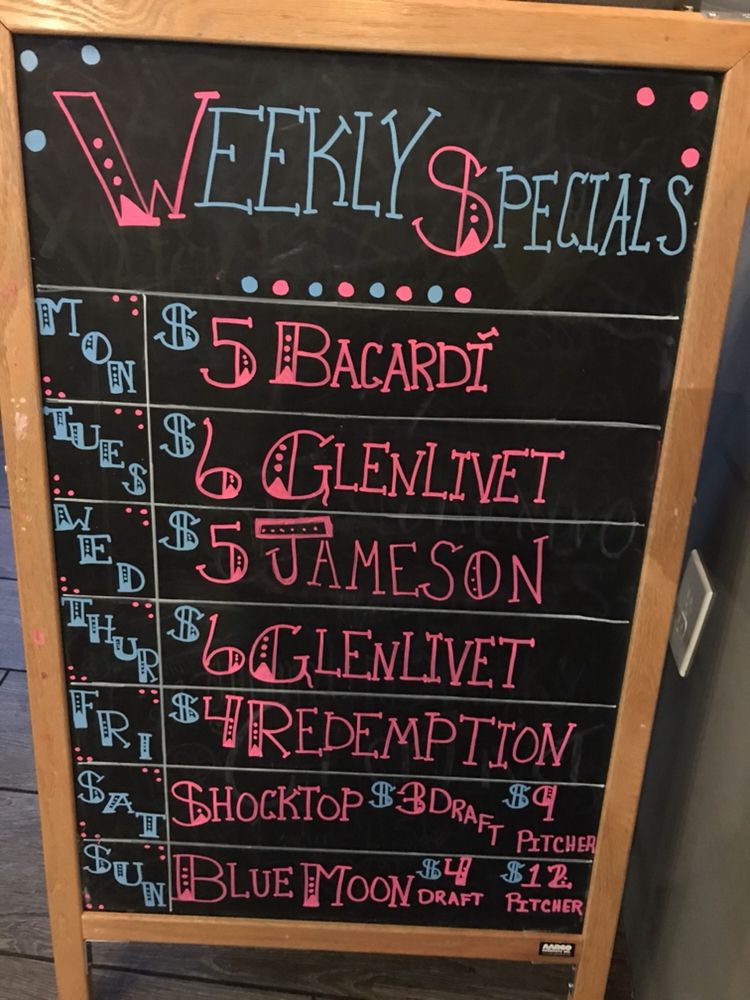 WEEKLY SPECIALS
MON $5 BACARDÍ
TUES $6 GLENLIVET
WED $5 JAMESON
THUR $6 GLENLIVET
FRI $4 REDEMPTION
SAT SHOCKTOP $3 DRAFT $9 PITCHER
SUN BLUE MOON $4 DRAFT $12 PITCHER
AARCO